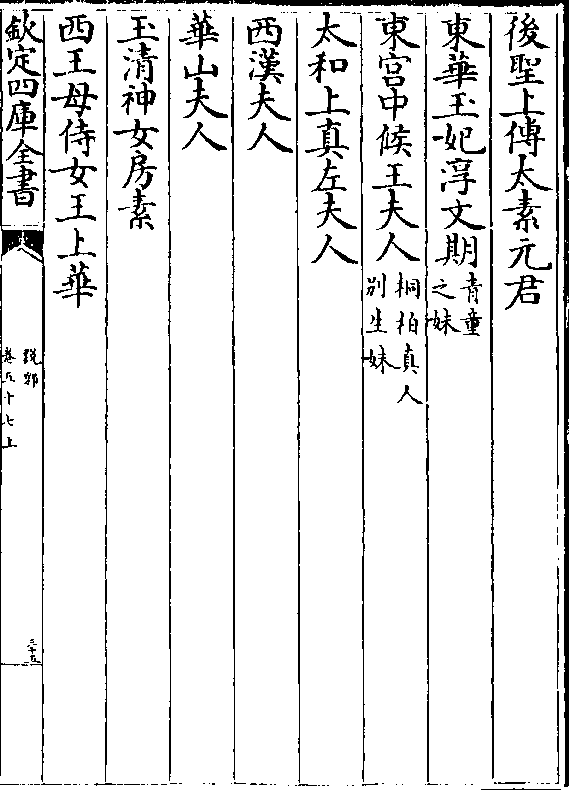 後聖上傅太素元君
東華玉妃淳文期青童之妹
東宮中候王夫人桐柏真人别生妹
太和上真左夫人
西漢夫人
華山夫人
玉清神女房素
西王母侍女王上華
欽定四庫全書
説郛
卷五十七上
三十五